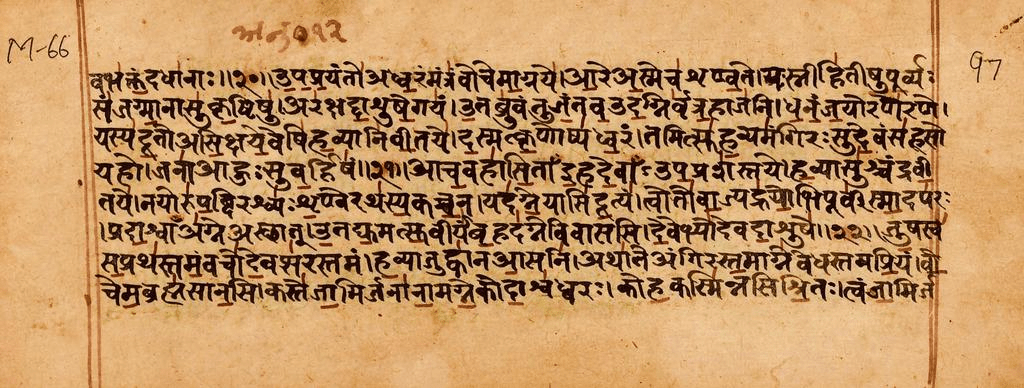 M-66
97
दधानाः॥२०॥उपप्रयंतोअध्वरंमंत्रंवोचेमाग्नये।आरेअस्मेचशृण्वते।यःस्नीहितीषुपूर्व्यः
संजग्मानासुकृष्टिषु।अरक्षद्दाशुषेगयं।उतब्रुवंतुजंतवउदग्निर्वृत्रहाजनि।धनंजयोरणेरणे।
यस्यदूतोअसिक्षयेवेषिहव्यानिवीतये।दस्मत्कृणोष्यध्वरं।तमित्सुहव्यमंगिरःसुदेवंसहसो
यहो।जनाआहुःसुबर्हिषं॥२१॥आचवहासिताँइहदेवाँउपप्रशस्तये।हव्यासुश्चंद्रवी
तये।नयोरुपब्दिरश्व्यःशृण्वेरथस्यकच्चन।यदग्नेयासिदूत्यं।त्वोतोवाज्यह्रयोभिपूर्वस्मादपरः
।प्रदाश्वाँअग्नेअस्थात्।उतद्युमत्सुवीर्यंबृहदग्नेविवाससि।देवेभ्योदेवदाशुषे॥२२॥जुषस्व
सप्रथस्तमंवचोदेवप्सरस्तमं।हव्याजुह्वानआसनि।अथातेअंगिरस्तमाग्नेवेधस्तमप्रियं।वो
चेमब्रह्मसानसि।कस्तेजामिर्जनानामग्नेकोदाश्वध्वरः।कोहकस्मिन्नसिश्रितः।त्वंजामिर्ज